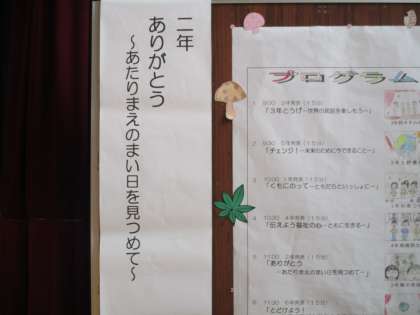 二年
ありがとう
～あたりまえのまい日を見つめて～
プログラム
1 9:00 3年発表(15分)
「3年とうげ～世界の民話を楽しもう～」
2 9:30 5年発表(15分)
「チェンジ！～未来のために今できること～」
3 10:00 1年発表(15分)
「くもにのって～ともだちといっしょに～」
4 10:30 4年発表(15分)
「伝えよう福祉の心～ともに生きる～」
5 11:00 2年発表(15分)
「ありがとう
～あたりまえのまい日を見つめて～」
6 11:30 6年発表(15分)
「とどけよう！